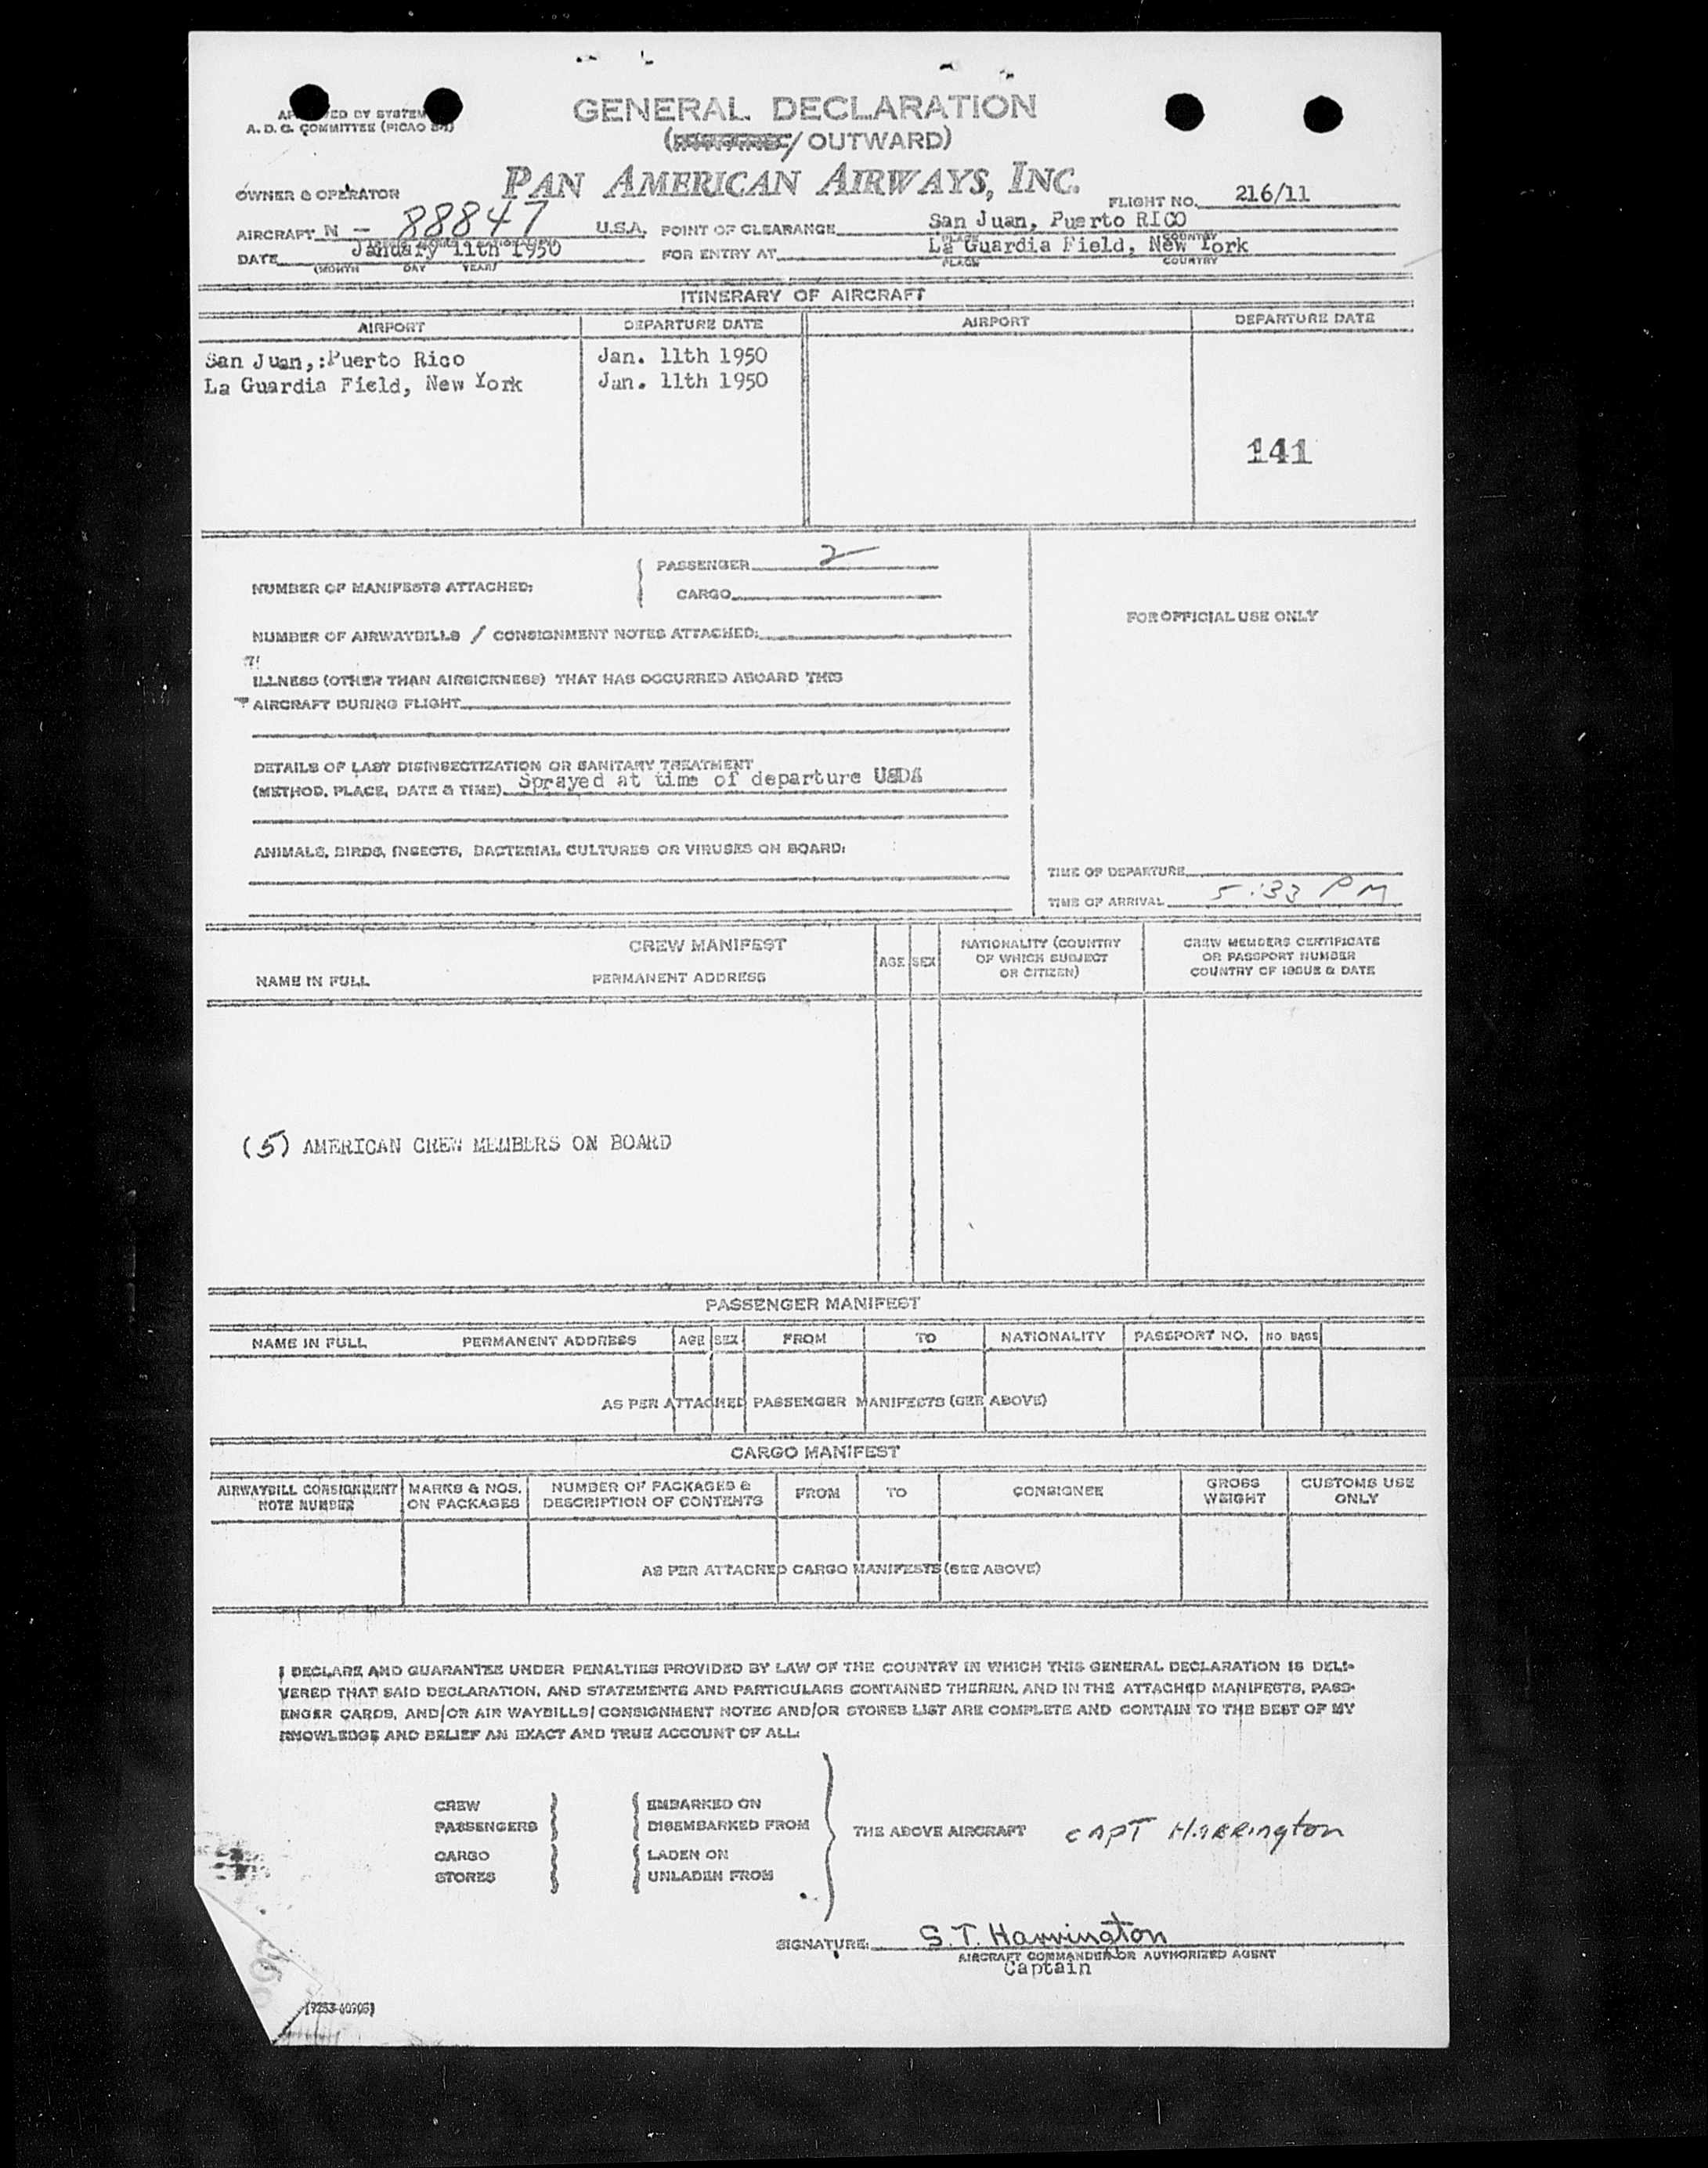 GENERAL DECLARATION
A. D. C. COMMITTEE (PICAO
/ OUTWARD)
PAN AMERICAN AIRWAYS, INC.
OWNER & OPERATOR
FLIGHT NO. 216/11
AIRCRAFT N - 88847 U.S.A. POINT OF CLEARANCE San Juan, Puerto RICO
PLACE COUNTRY
DATE January 11th 1950 FOR ENTRY AT La Guardia Field, New York
(MONTH DAY YEAR) PLACE COUNTRY
ITINERARY OF AIRCRAFT
AIRPORT DEPARTURE DATE AIRPORT DEPARTURE DATE
San Juan,:Puerto Rico Jan. 11th 1950
La Guardia Field, New York Jan. 11th 1950
141
PASSENGER 2
NUMBER OF MANIFESTS ATTACHED:
CARGO
FOR OFFICIAL USE ONLY
NUMBER OF AIRWAYBILLS / CONSIGNMENT NOTES ATTACHED:
ILLNESS (OTHER THAN AIRSICKNESS) THAT HAS OCCURRED ABOARD THIS
AIRCRAFT DURING FLIGHT
DETAILS OF LAST DISINSECTIZATION OR SANITARY TREATMENT
(METHOD, PLACE, DATE & TIME) Sprayed at time of departure USDA
ANIMALS, BIRDS, INSECTS, BACTERIAL CULTURES OR VIRUSES ON BOARD:
TIME OF DEPARTURE
TIME OF ARRIVAL 5:33 PM
CREW MANIFEST
NAME IN FULL PERMANENT ADDRESS AGE SEX NATIONALITY (COUNTRY OF WHICH SUBJECT OR CITIZEN) CREW MEMBERS CERTIFICATE OR PASSPORT NUMBER COUNTRY OF ISSUE & DATE
(5) AMERICAN CREW MEMBERS ON BOARD
PASSENGER MANIFEST
NAME IN FULL PERMANENT ADDRESS AGE SEX FROM TO NATIONALITY PASSPORT NO. NO. BAGS
AS PER ATTACHED PASSENGER MANIFESTS (SEE ABOVE)
CARGO MANIFEST
AIRWAYBILL CONSIGNMENT NOTE NUMBER MARKS & NOS. ON PACKAGES NUMBER OF PACKAGES & DESCRIPTION OF CONTENTS FROM TO CONSIGNEE GROSS WEIGHT CUSTOMS USE ONLY
AS PER ATTACHED CARGO MANIFESTS (SEE ABOVE)
I DECLARE AND GUARANTEE UNDER PENALTIES PROVIDED BY LAW OF THE COUNTRY IN WHICH THIS GENERAL DECLARATION IS DELI-
VERED THAT SAID DECLARATION, AND STATEMENTS AND PARTICULARS CONTAINED THEREIN, AND IN THE ATTACHED MANIFESTS, PASS-
ENGER CARDS, AND/OR AIR WAYBILLS/CONSIGNMENT NOTES AND/OR STORES LIST ARE COMPLETE AND CONTAIN TO THE BEST OF MY
KNOWLEDGE AND BELIEF AN EXACT AND TRUE ACCOUNT OF ALL:
CREW EMBARKED ON
PASSENGERS DISEMBARKED FROM
THE ABOVE AIRCRAFT CAPT HARRington
CARGO LADEN ON
STORES UNLADEN FROM
SIGNATURE: S.T. Harrington
AIRCRAFT COMMANDER OR AUTHORIZED AGENT
Captain